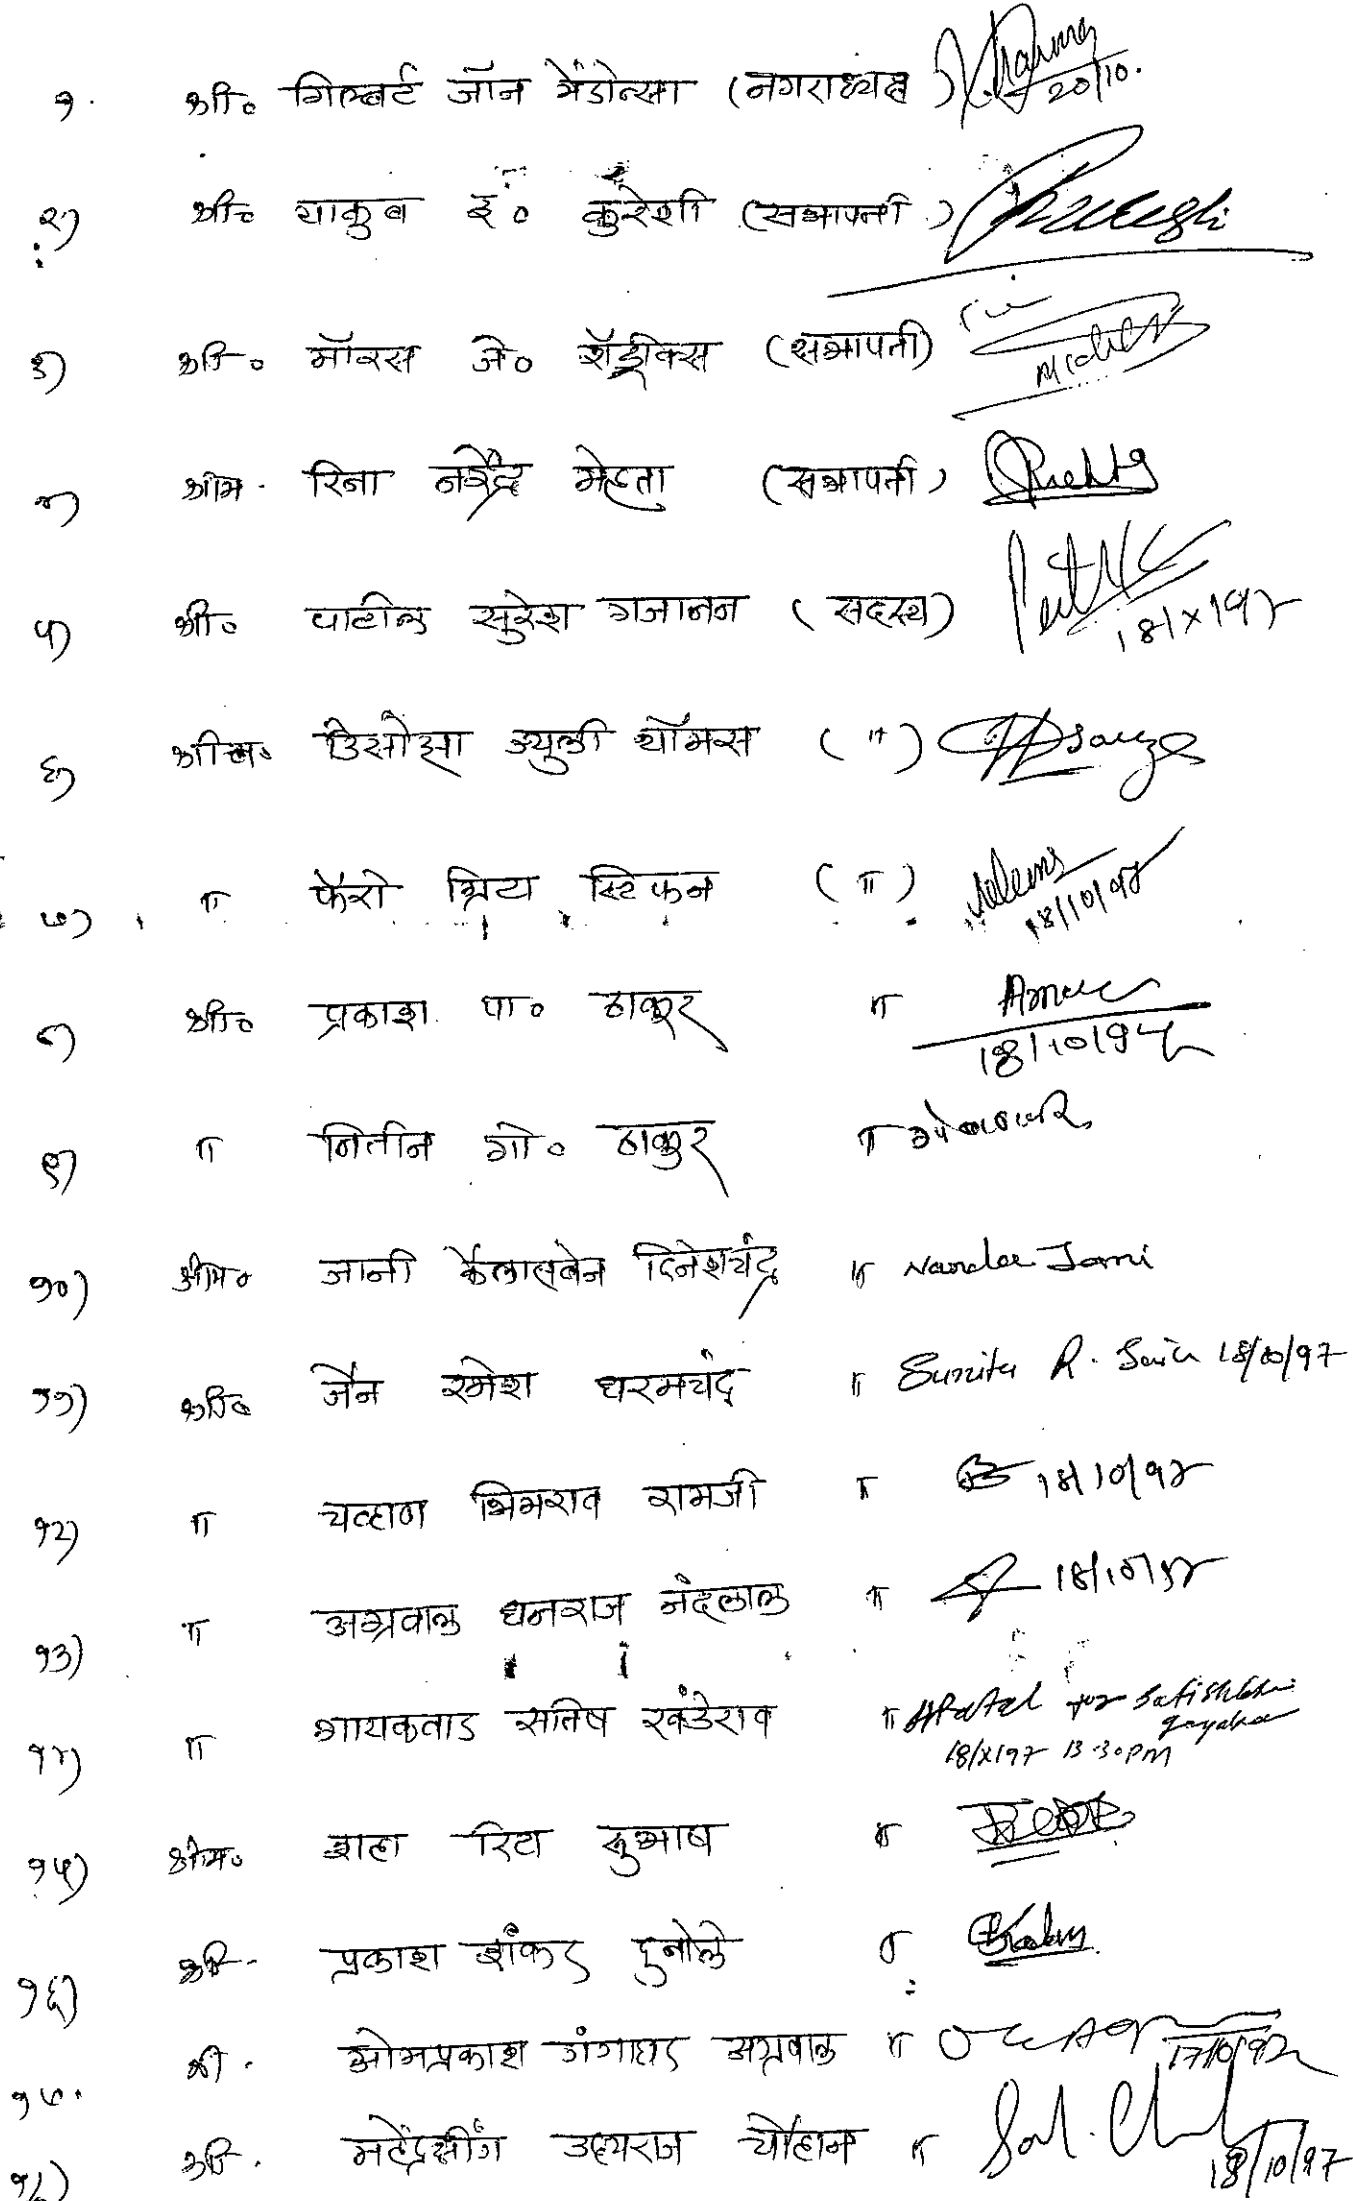 १. श्री० गिल्बर्ट जॉन मेंडोन्सा (नगराध्यक्ष) 20/10.
२) श्री० याकुब इ० कुरेशी (सभापती)
३) श्री० मॉरस जे० रॉड्रीक्स (सभापती)
४) श्रीम. रिना नरेंद्र मेहता (सभापती)
५) श्री० पाटील सुरेश गजानन (सदस्य) 18/X/97
६) श्रीम० डिसोझा ज्युली थॉमस (")
७) " फॅरो ग्रिटा स्टिफन (") 18/10/97
८) श्री० प्रकाश पा० ठाकूर " 18/10/97
९) " नितीन गो० ठाकुर "
१०) श्रीम० जानी कैलासबेन दिनेशचंद्र " Nandee Jani
११) श्री० जैन रमेश धरमचंद " Sunita R. Jain 18/10/97
१२) " चव्हाण भिमराव रामजी " 18/10/97
१३) " अग्रवाल धनराज नंदलाल " 18/10/97
१४) " गायकवाड सतिष खंडेराव " for Satishbhai
18/X/97 13.30PM
१५) श्रीम० शहा रिटा सुभाष "
१६) श्री. प्रकाश शंकर दुनोले "
१७. श्री. ओमप्रकाश गंगाधर अग्रवाल " 17/10/97
१८) श्री. महेंद्रसींग उदयराज चौहान " 18/10/97